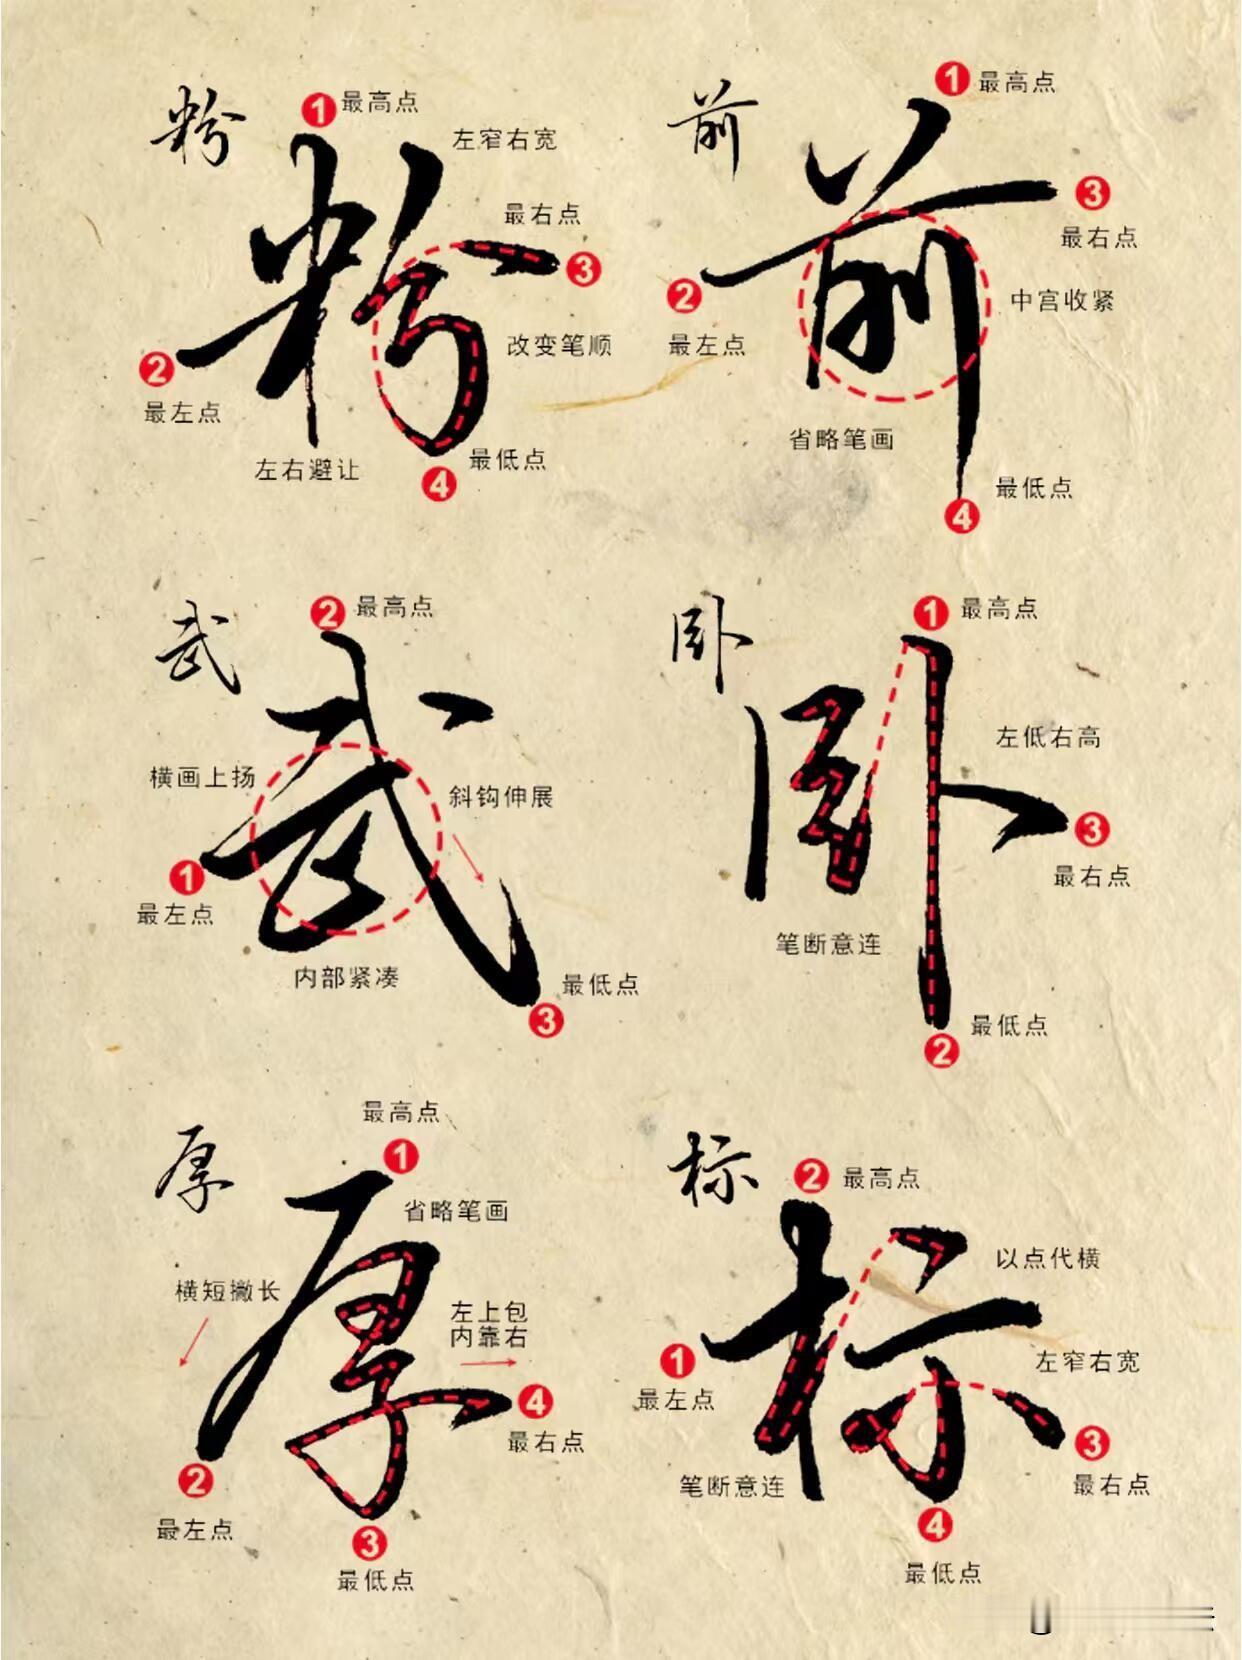 粉
❶ 最高点
左窄右宽
最右点
❸
改变笔顺
❷
最左点
左右避让
最低点
❹
前
❶ 最高点
❸
最右点
❷
最左点
中宫收紧
省略笔画
最低点
❹
武
❷ 最高点
横画上扬
斜钩伸展
❶
最左点
内部紧凑
最低点
❸
卧
❶ 最高点
左低右高
❸
最右点
笔断意连
最低点
❷
厚
最高点
❶
省略笔画
横短撇长
左上包
内靠右
❹
最右点
❷
最左点
❸
最低点
标
❷ 最高点
以点代横
❶
最左点
左窄右宽
❸
最右点
笔断意连
❹
最低点
粉
前
武
卧
厚
标